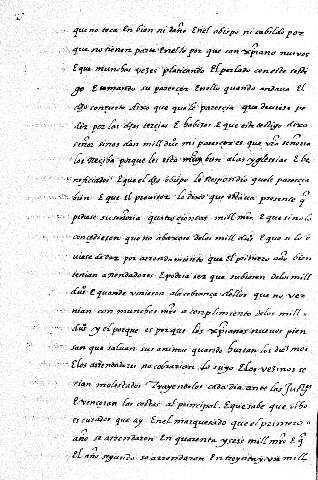 que no toca En bien ni daño En el obispo ni cabildo por
que no tienen parte En ello por que son xpianos nuevos
E que muchas vezes platicando El perlado con este testi
go E tomando su parecer En ello quando andava El
dho concierto dixo que que le parecia que devia de pe
dir por los dhos tercias E habizes E que este testigo dixo
señor sinco dan mill dus mi parecer es que vra señoria
los Reciba porque les esta muy bien a las yglesias E be
neficiados E que el dho obispo le Respondio que le parecia
bien E que el provisor le dixo que estava presente q
pidiese su señoria quatrocientas mill mrs E que si no lo
concediesen que no abaxase de los mill dus E que si lo o
viese de dar por arrendamiento que el primero año bien
ternian arrendadores E podria ser que subiesen de los mill
dus E quando viniesen a la cobrança dellos que no ver
nian con muchos mrs a conplimiento de los mill
dus y el porque es porque los xpianos nuevos pien
san que salvan sus animas quando hurtan los diezmos
E los arrendadores no cobrarian lo suyo E los vezinos se
rian molestados Trayendolos cada dia ante las Justas
E vencerian las costas al principal E que sabe que
curador que ay En el marquesado que el primero
año se arrendaron En quarenta y seis mill mrs E q
El año segundo se arrendaron En treynta y un mill